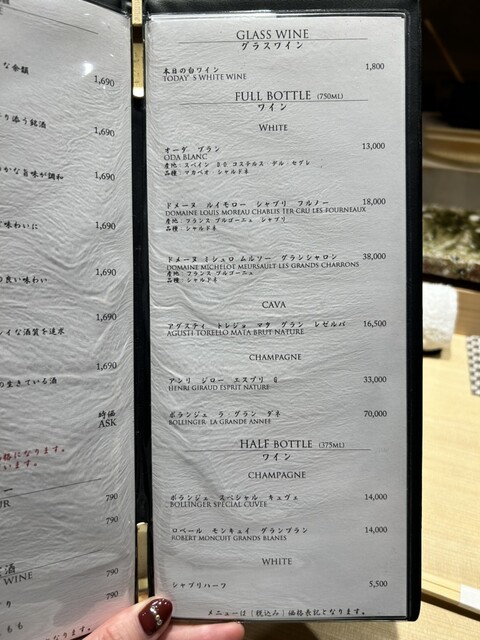 な余韻
1,690
り添う銘酒
1,690
かな旨味が調和
1,690
味わいに
1,690
の良い味わい
1,690
レイな酒質を追求
1,690
の生きている酒
時価
ASK
格になります。
います。
790
790
酒
WINE
790
り
790
もも
GLASS WINE
グラスワイン
本日の白ワイン 1,800
TODAY´S WHITE WINE
FULL BOTTLE (750ML)
ワイン
WHITE
オーダ ブラン 13,000
ODA BLANC
産地：スペイン DO コステルス・デル・セグレ
品種：マカベオ シャルドネ
ドメーヌ ルイモロー シャブリ フルノー 18,000
DOMAINE LOUIS MOREAU CHABLIS 1ER CRU LES FOURNEAUX
産地：フランス ブルゴーニュ シャブリ
品種：シャルドネ
ドメーヌ ミシュロ ムルソー グランシャロン 38,000
DOMAINE MICHELOT MEURSAULT LES GRANDS CHARRONS
産地：フランス ブルゴーニュ
品種：シャルドネ
CAVA
アグスティ トレジョ マタ グラン レゼルバ 16,500
AGUSTI TORELLO MATA BRUT NATURE
CHAMPAGNE
アンリ ジロー エスプリ G 33,000
HENRI GIRAUD ESPRIT NATURE
ボランジェ ラ グラン ダネ 70,000
BOLLINGER LA GRANDE ANNEE
HALF BOTTLE (375ML)
ワイン
CHAMPAGNE
ボランジェ スペシャル キュヴェ 14,000
BOLLINGER SPECIAL CUVEE
ロベール モンキュイ グランブラン 14,000
ROBERT MONCUIT GRANDS BLANES
WHITE
シャブリハーフ 5,500
メニューは（税込み）価格表記となります。